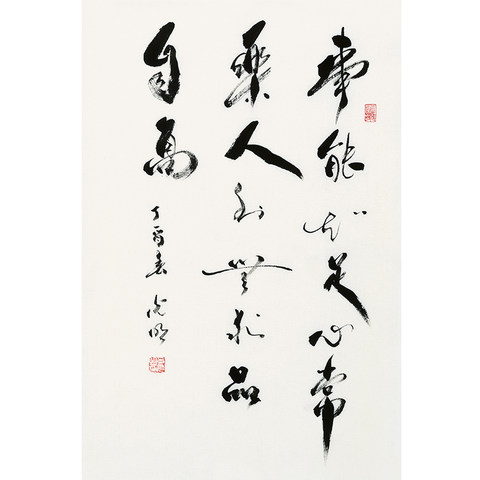 事能知足心常
樂人到無求品
自高
丁酉春